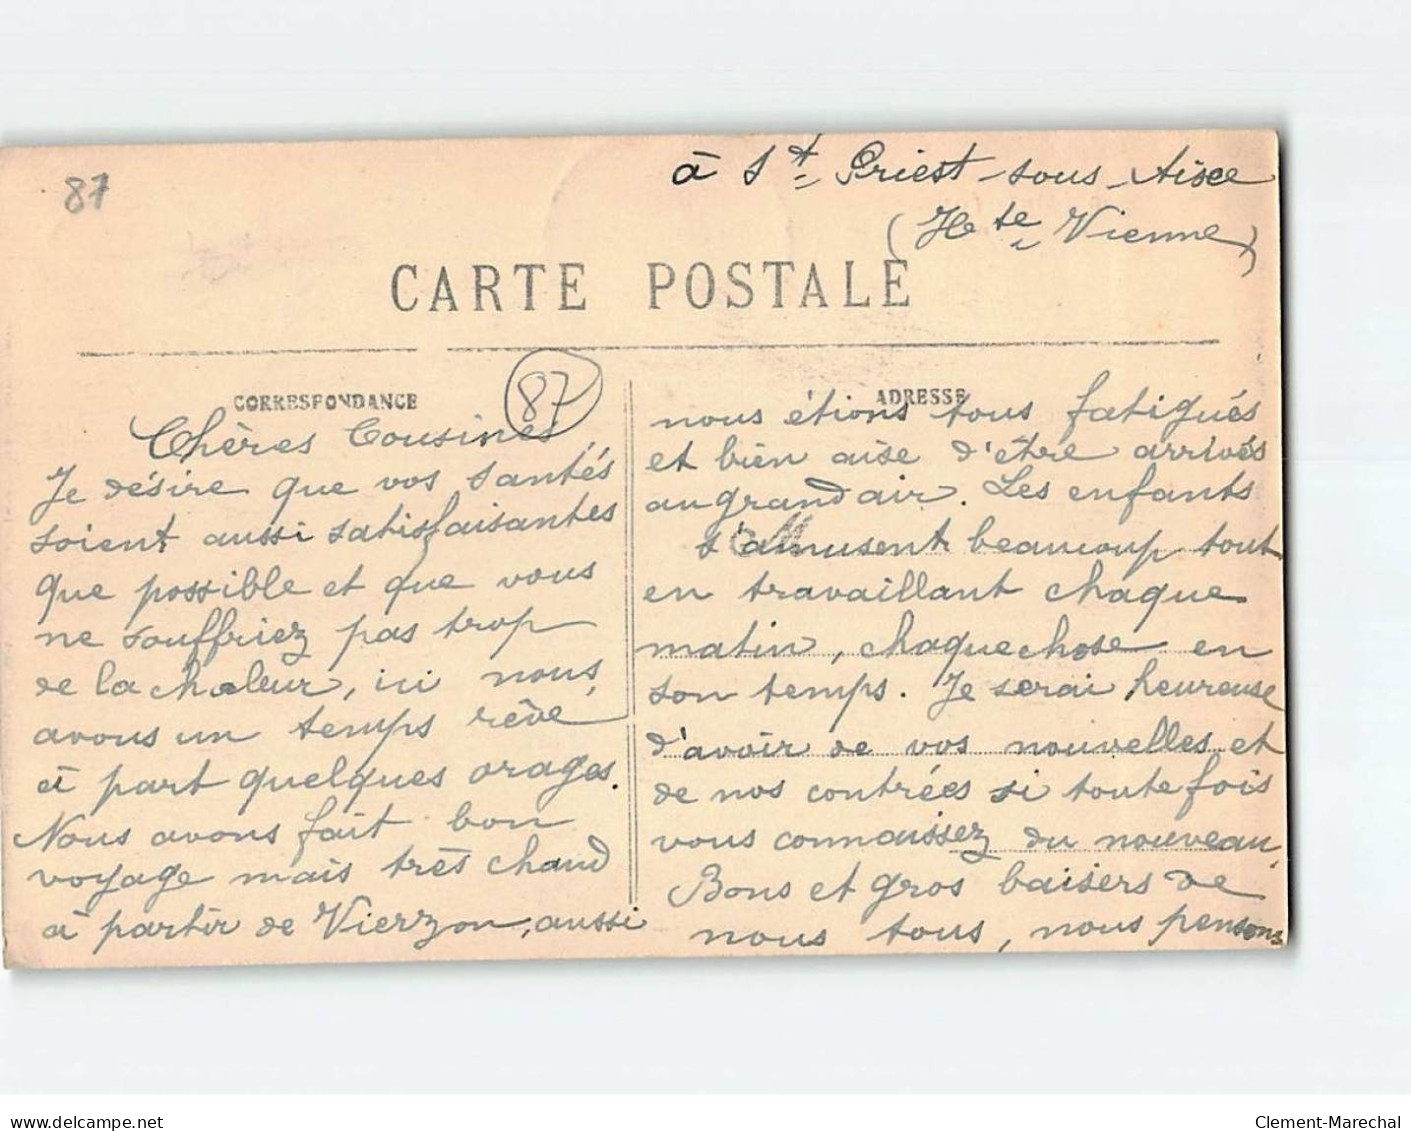 87
à St Priest-sous-Aixe
(Hte Vienne)
CARTE POSTALE
CORRESPONDANCE
87
ADRESSE
Chères Cousines
Je désire que vos santés
soient aussi satisfaisantes
que possible et que vous
ne souffriez pas trop
de la chaleur, ici nous
avons un temps rêvé
à part quelques orages.
Nous avons fait bon
voyage mais très chaud
à partir de Vierzon, aussi
nous étions tous fatigués
et bien aise d'être arrivés
au grand air. Les enfants
s'amusent beaucoup tout
en travaillant chaque
matin, chaque chose en
son temps. Je serai heureuse
d'avoir de vos nouvelles et
de nos contrées si toutefois
vous connaissez du nouveau.
Bons et gros baisers de
nous tous, nous pensons
delcampe.net
Clement-Marechal